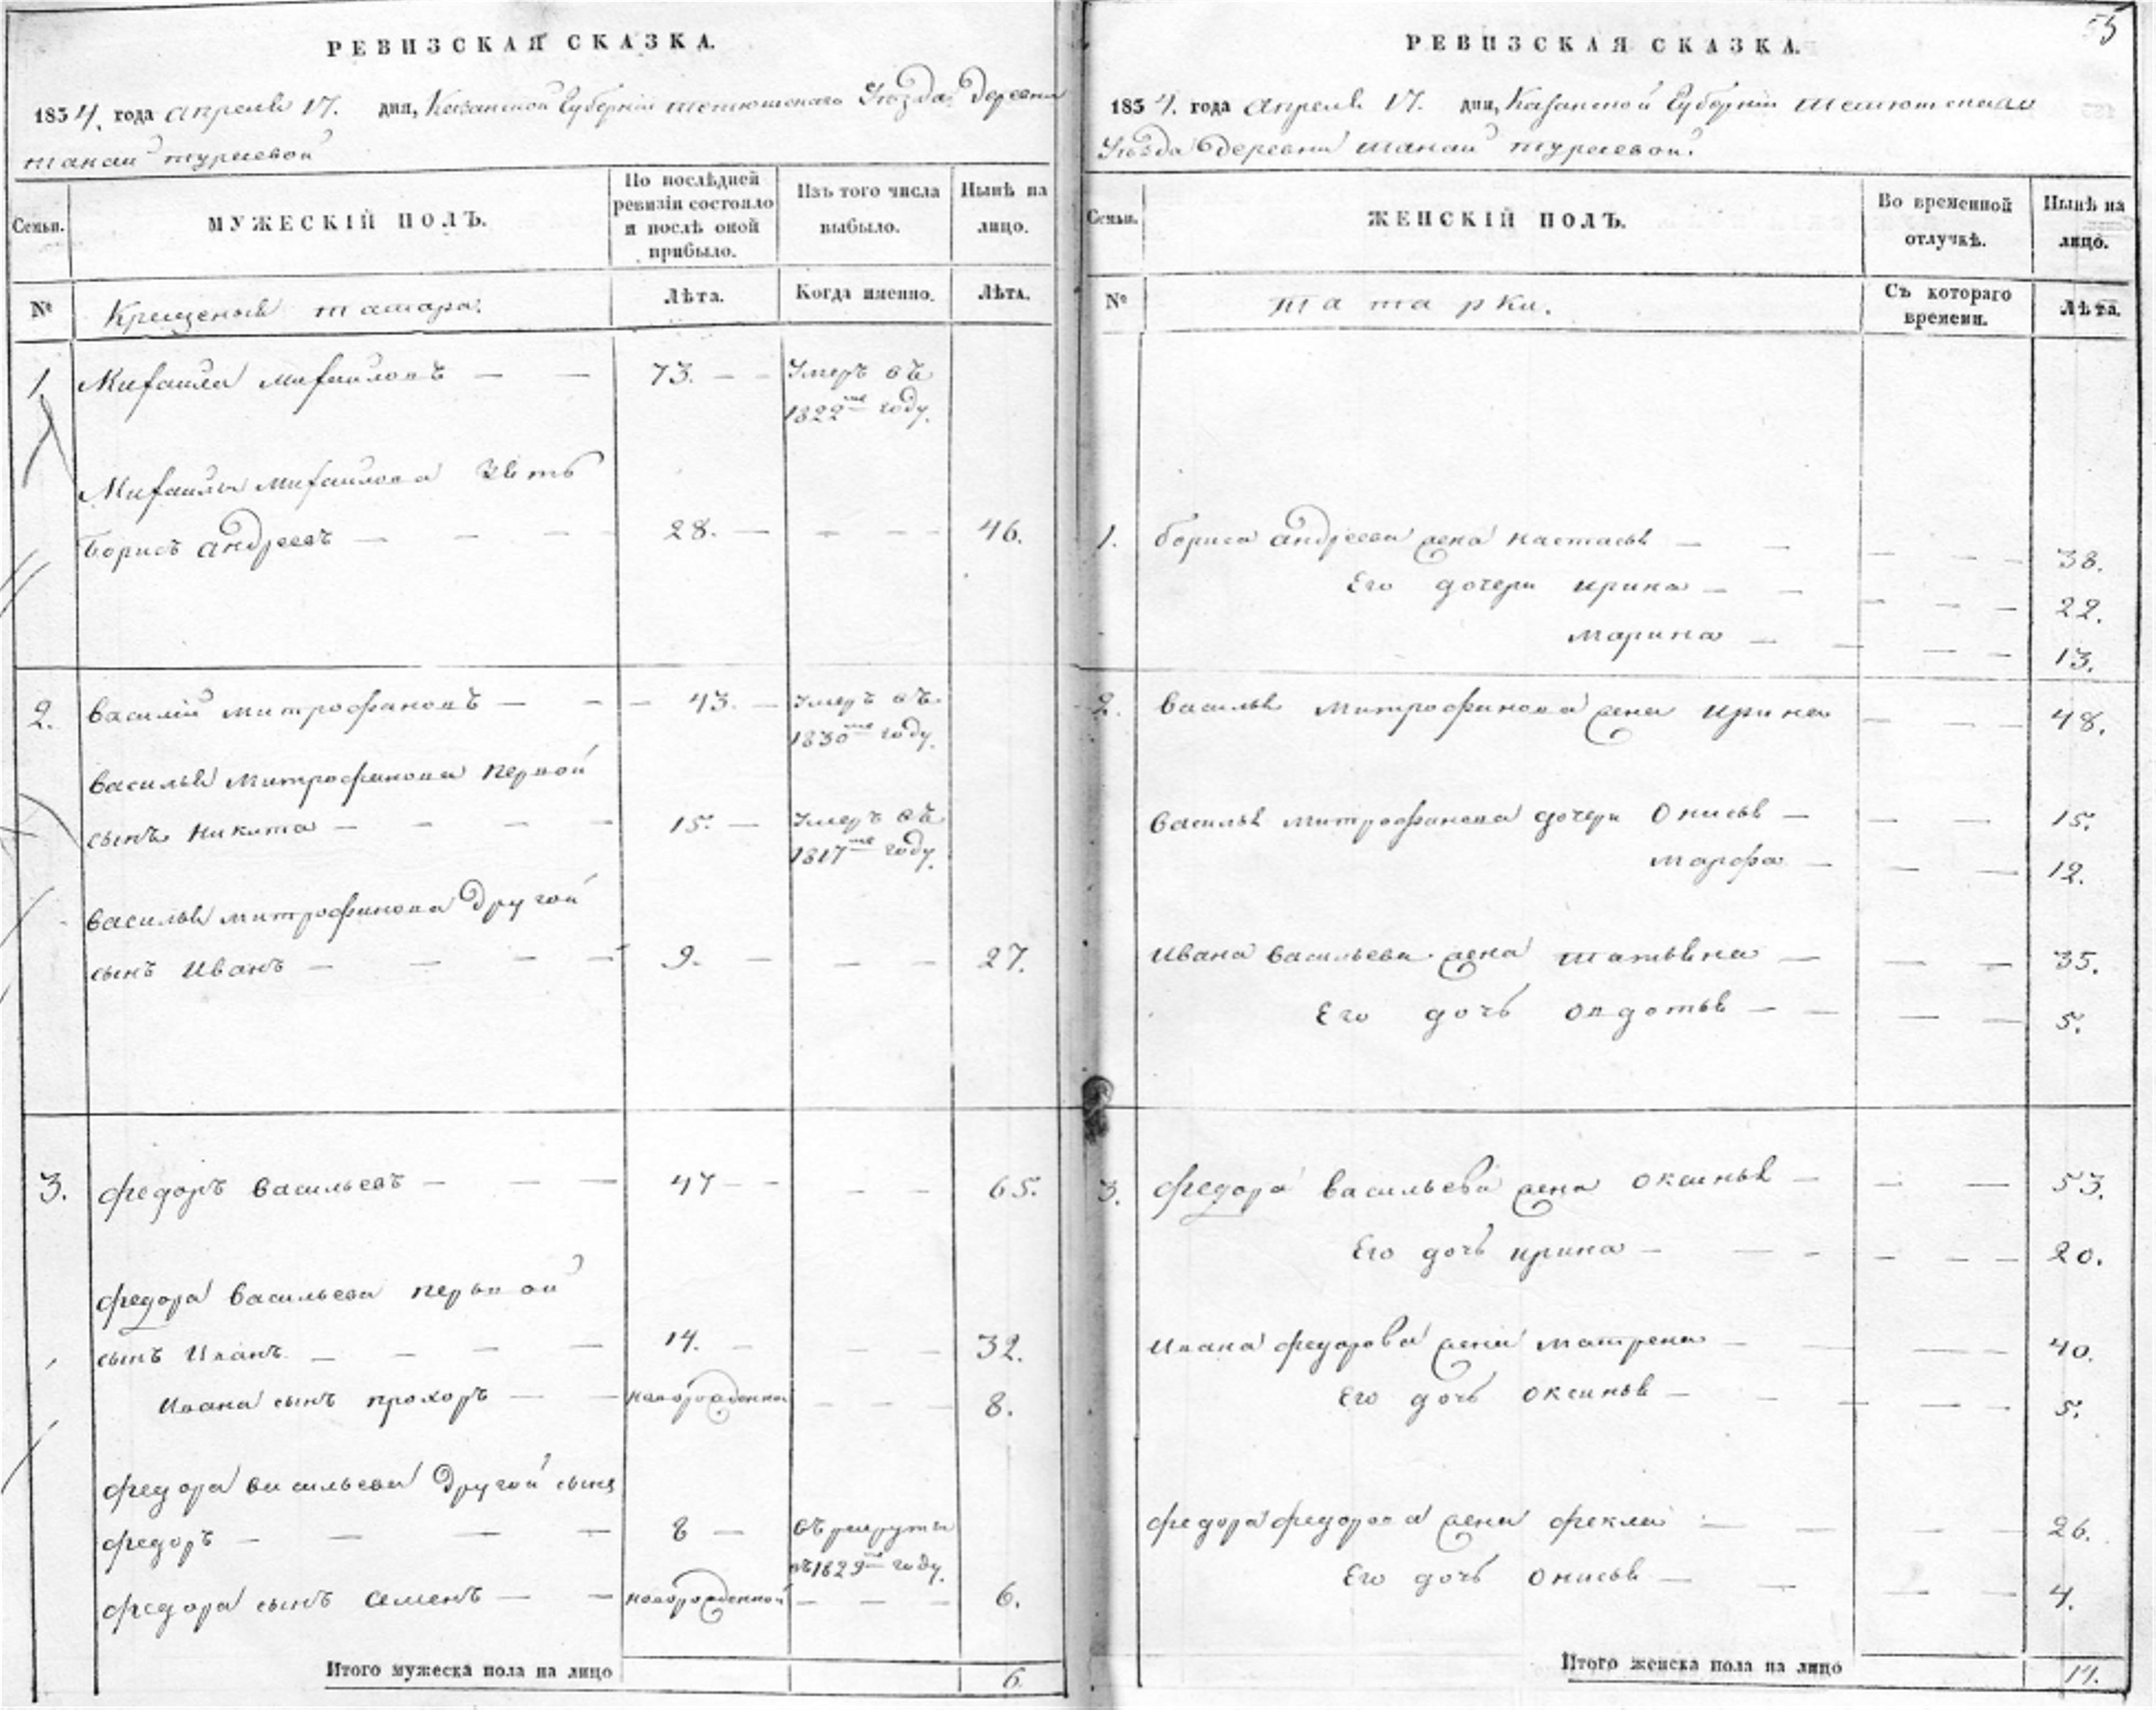 55
РЕВИЗСКАЯ СКАЗКА.
1834. года апреля 17. дня, Казанской Губернии тетюшскаго Уѣзда деревни
танаи турѣевой
Семьи.
МУЖЕСКІЙ ПОЛЪ.
По послѣдней ревизіи состояло и послѣ оной прибыло.
Изъ того числа выбыло.
Нынѣ на лицо.
№
Крещеныя татара.
Лѣта.
Когда именно.
Лѣта.
1. Михаила михаиловъ — — 73. — — Умеръ въ
1822мъ году.
Михаилы михаилова зять
борисъ андреевъ — — — — 28. — — — — 46.
2. василій митрофановъ — — — 43. — Умеръ въ
1830мъ году.
василья митрофанова первой
сынъ никита — — — — 15. — Умеръ въ
1817мъ году.
василья митрофанова другой
сынъ иванъ — — — — 9. — — — 27.
3. федоръ васильевъ — — — 47 — — — — 65.
федора васильева первой
сынъ иванъ — — — — 14. — — — 32.
ивана сынъ прохоръ — — новорожденной — — — 8.
федора васильева другой сынъ
федоръ — — — — 8 — въ рекруты
въ 1829мъ году.
федора сынъ семенъ — — новорожденной — — — 6.
Итого мужеска пола на лицо 6
РЕВИЗСКАЯ СКАЗКА.
1834. года апреля 17. дня, Казанской Губернии тетюшскаго
Уѣзда деревни танаи турѣевой.
Семьи.
ЖЕНСКІЙ ПОЛЪ.
Во временной отлучкѣ.
Нынѣ на лицо.
№
татарки.
Съ котораго времени.
Лѣта.
1. бориса андреева жена настасья — — — — — 38.
Его дочери ирина — — — — — 22.
марина — — — — 13.
2. василья митрофанова жена ирина — — — 48.
василья митрофанова дочери Онисья — — — 15.
марфа — — — 12.
ивана васильева жена татьяна — — — 35.
Его дочь овдотья — — — — 5.
3. федора васильева жена оксинья — — — 53.
Его дочь ирина — — — — — — 20.
ивана федорова жена матрена — — — — 40.
Его дочь оксинья — — — — — 5.
федора федорова жена фекла — — — — 26.
Его дочь онисья — — — — 4.
Итого женска пола на лицо 14.